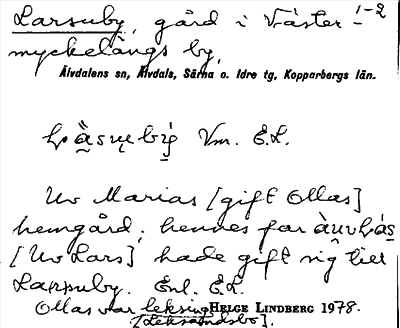 Larsuby, gård i Väster- 1-2
myckelängs by,
Älvdalens sn, Älvdals, Särna o. Idre tg, Kopparbergs län.
Vm. E.L.
Uv Marias [gift Ollas]
hemgård; hennes far
[Uv Lars] hade gift sig till
Larsuby. Enl. E.L.
Ollas var leksing HELGE LINDBERG 1978.
[Leksandsbo].